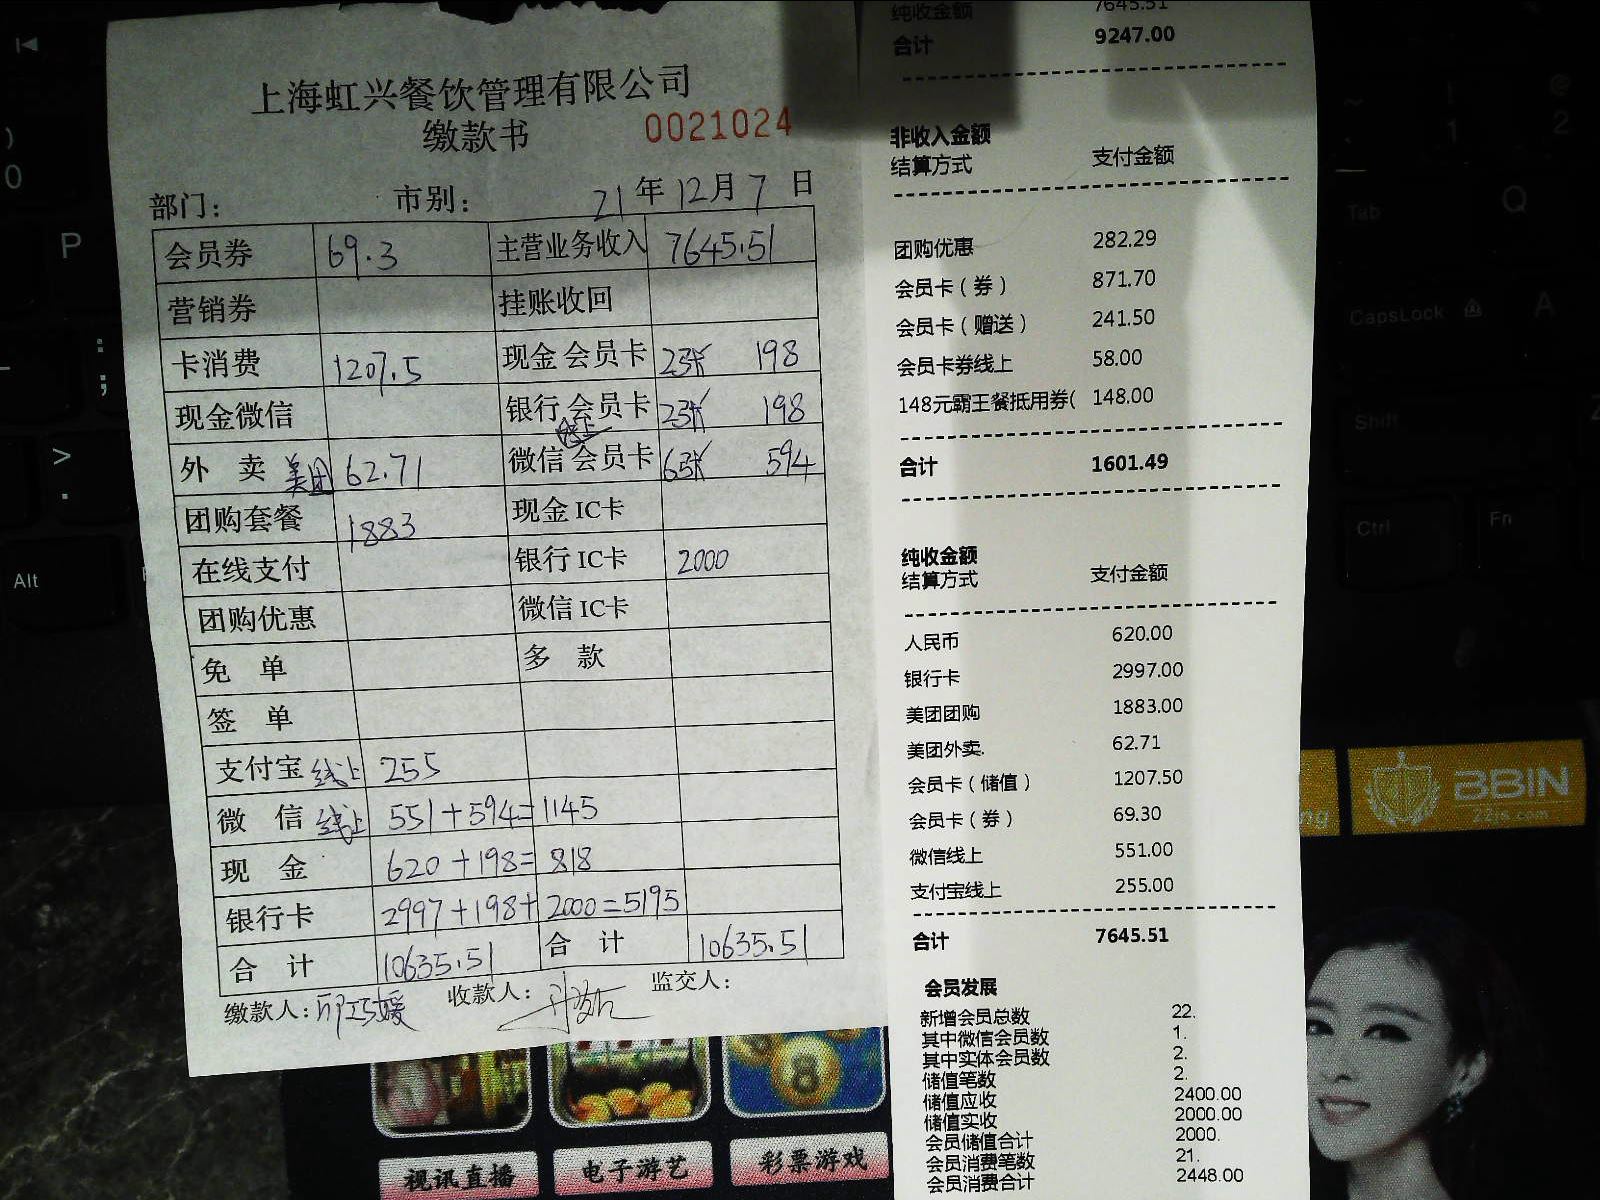 上海虹兴餐饮管理有限公司
缴款书 0021024
部门: 市别: 21年12月7日
会员券 69.3 主营业务收入 7645.51
营销券 挂账收回
卡消费 1207.5 现金会员卡 2张 198
现金微信 银行会员卡 2张 198
外 卖 美团 62.71 微信会员卡 6张 594
团购套餐 1883 现金IC卡
在线支付 银行IC卡 2000
团购优惠 微信IC卡
免 单 多 款
签 单
支付宝 线上 255
微 信 线上 551+594=1145
现 金 620+198=818
银行卡 2997+198+2000=5195
合 计 10635.51 合 计 10635.51
缴款人: 收款人: 监交人:
纯收金额 7645.51
合计 9247.00
非收入金额
结算方式 支付金额
团购优惠 282.29
会员卡(券) 871.70
会员卡(赠送) 241.50
会员卡券线上 58.00
148元霸王餐抵用券( 148.00
合计 1601.49
纯收金额
结算方式 支付金额
人民币 620.00
银行卡 2997.00
美团团购 1883.00
美团外卖. 62.71
会员卡(储值) 1207.50
会员卡(券) 69.30
微信线上 551.00
支付宝线上 255.00
合计 7645.51
会员发展
新增会员总数 22.
其中微信会员数 1.
其中实体会员数 2.
储值笔数 2.
储值应收 2400.00
储值实收 2000.00
会员储值合计 2000.
会员消费笔数 21.
会员消费合计 2448.00
视讯直播
电子游艺
彩票游戏
BBIN
22js.com
ng
P
Alt
Tab
Q
CapsLock
A
Shift
Ctrl
Fn